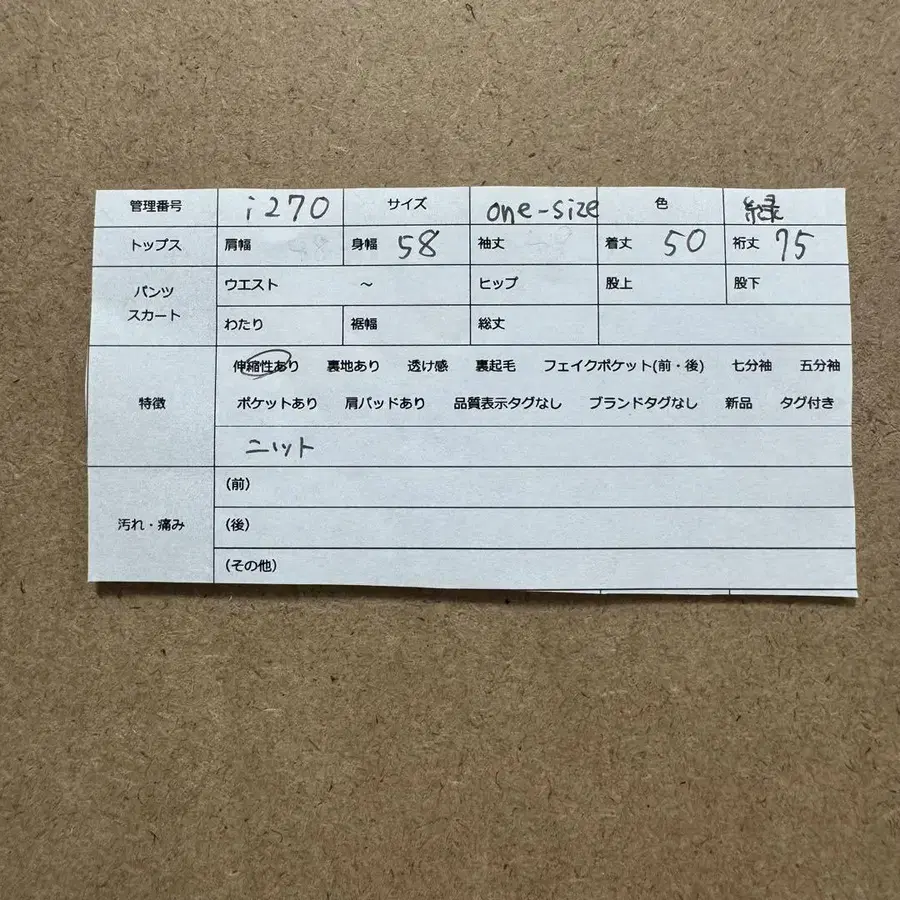 管理番号 i270 サイズ one-size 色 緑
トップス 肩幅 身幅 58 袖丈 着丈 50 裄丈 75
パンツ スカート ウエスト ～ ヒップ 股上 股下
わたり 裾幅 総丈
特徴 伸縮性あり 裏地あり 透け感 裏起毛 フェイクポケット(前・後) 七分袖 五分袖
ポケットあり 肩パッドあり 品質表示タグなし ブランドタグなし 新品 タグ付き
ニット
汚れ・痛み (前)
(後)
(その他)